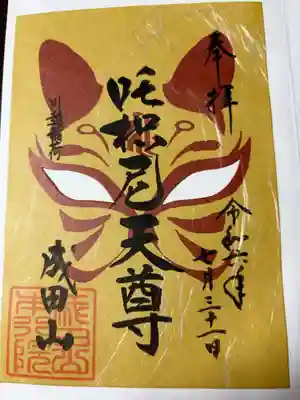 奉拝
令和六年
七月三十一日
吒枳尼天尊
出世稲荷
成田山